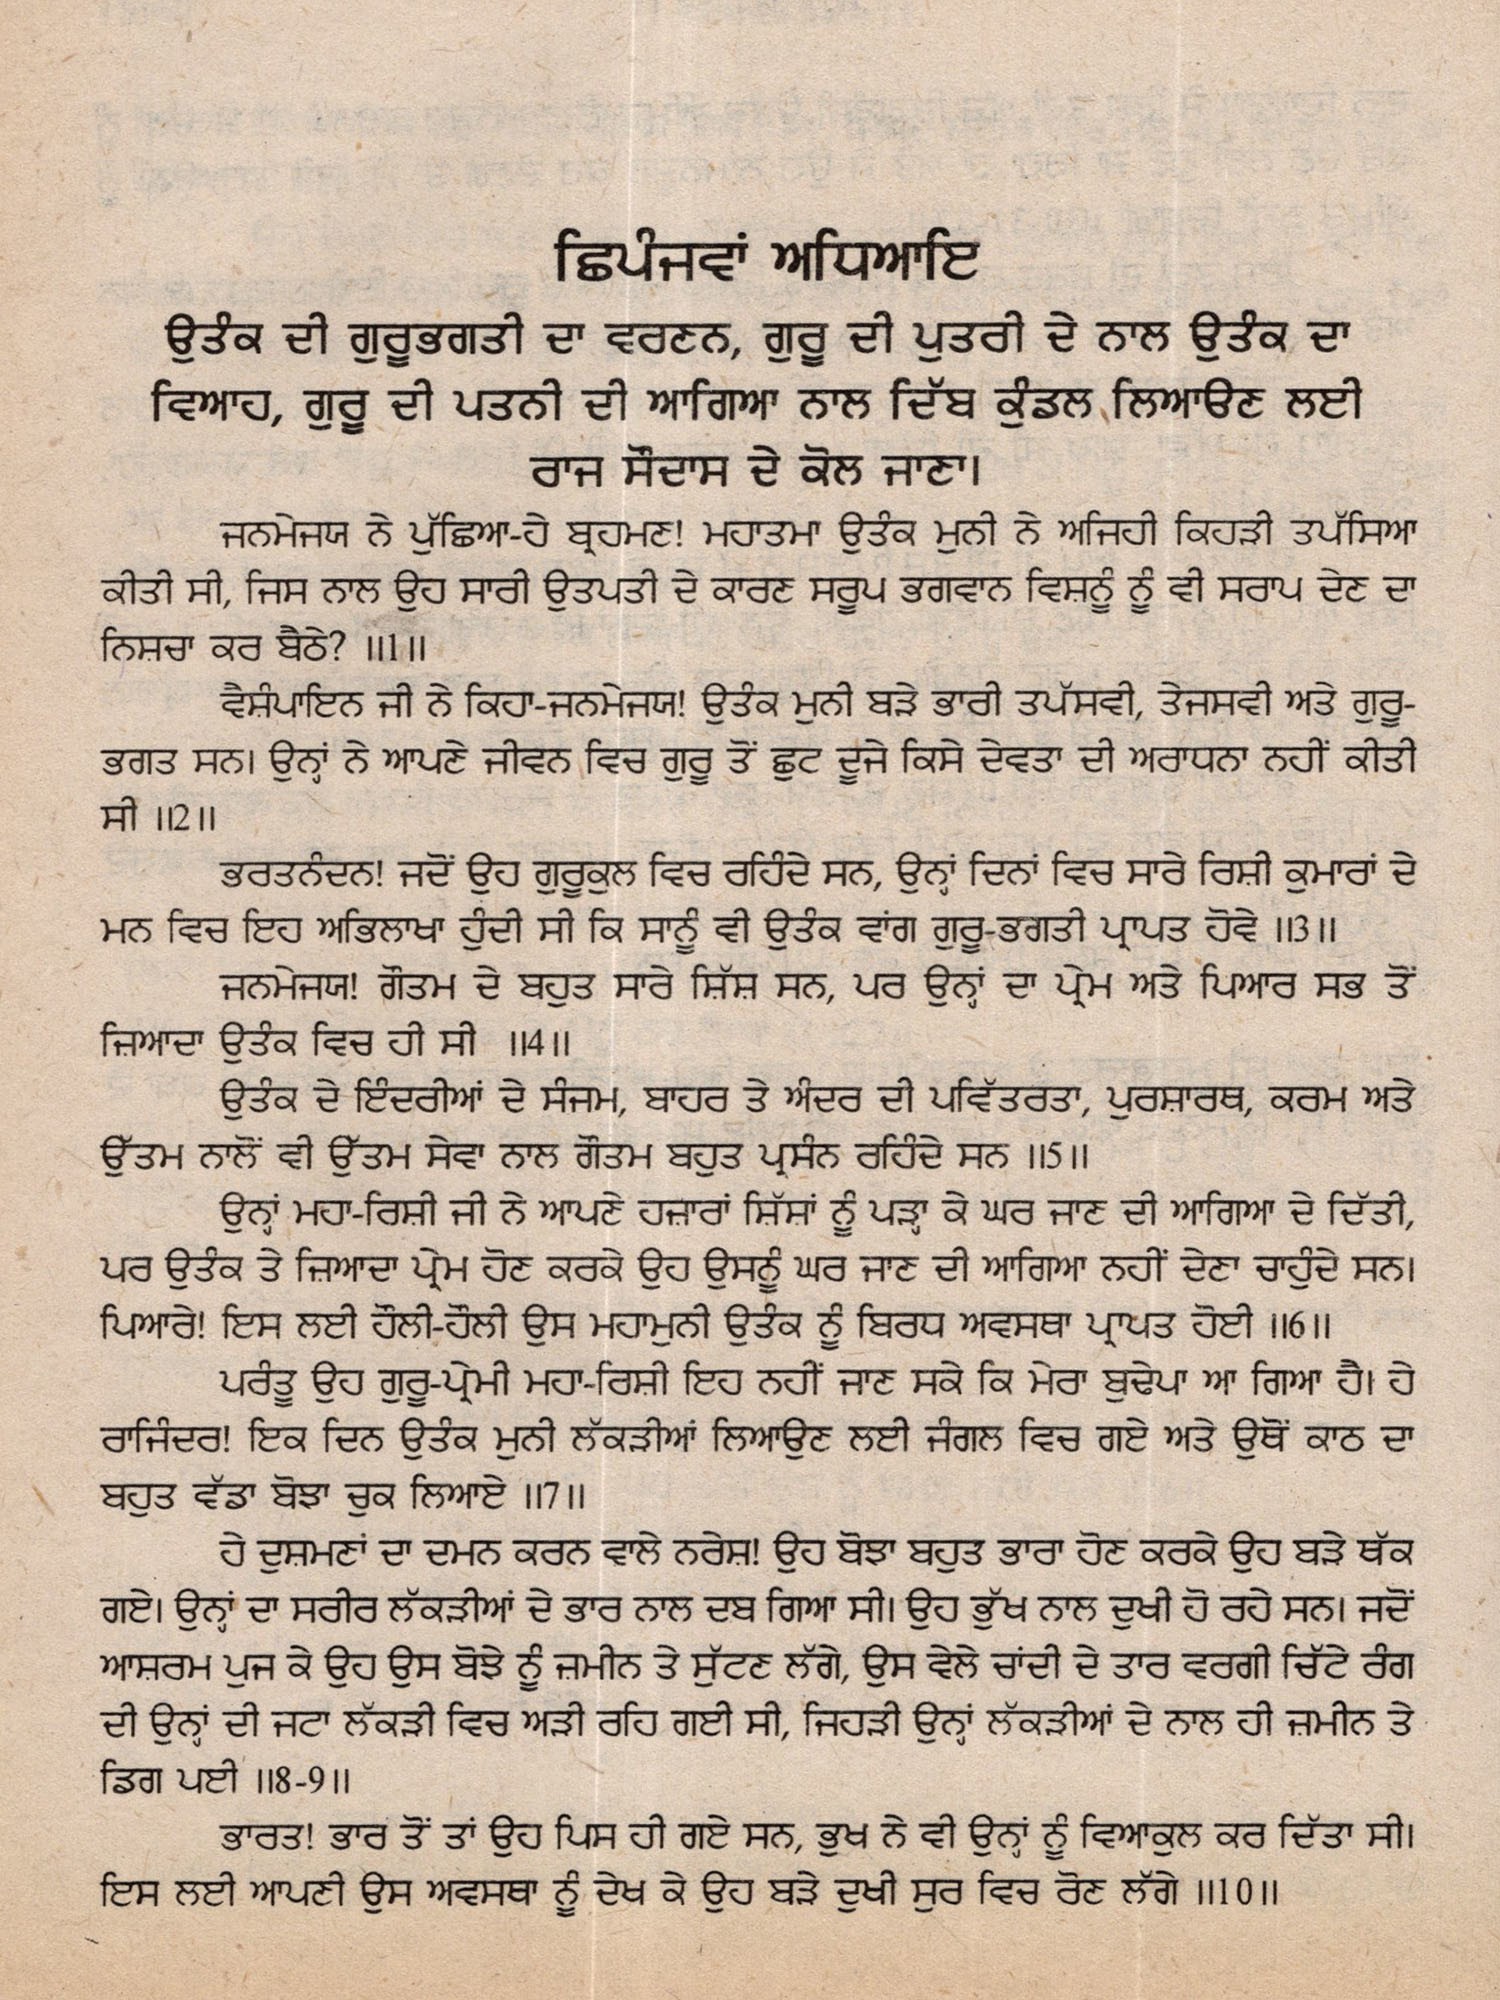 ਛਿਪੰਜਵਾਂ ਅਧਿਆਇ
ਉਤੰਕ ਦੀ ਗੁਰੂਭਗਤੀ ਦਾ ਵਰਣਨ, ਗੁਰੂ ਦੀ ਪੁਤਰੀ ਦੇ ਨਾਲ ਉਤੰਕ ਦਾ
ਵਿਆਹ, ਗੁਰੂ ਦੀ ਪਤਨੀ ਦੀ ਆਗਿਆ ਨਾਲ ਦਿੱਬ ਕੁੰਡਲ ਲਿਆਉਣ ਲਈ
ਰਾਜ ਸੌਦਾਸ ਦੇ ਕੋਲ ਜਾਣਾ।
ਜਨਮੇਜਯ ਨੇ ਪੁੱਛਿਆ-ਹੇ ਬ੍ਰਹਮਣ! ਮਹਾਤਮਾ ਉਤੰਕ ਮੁਨੀ ਨੇ ਅਜਿਹੀ ਕਿਹੜੀ ਤਪੱਸਿਆ
ਕੀਤੀ ਸੀ, ਜਿਸ ਨਾਲ ਉਹ ਸਾਰੀ ਉਤਪਤੀ ਦੇ ਕਾਰਣ ਸਰੂਪ ਭਗਵਾਨ ਵਿਸ਼ਨੂੰ ਨੂੰ ਵੀ ਸਰਾਪ ਦੇਣ ਦਾ
ਨਿਸ਼ਚਾ ਕਰ ਬੈਠੇ? ॥1॥
ਵੈਸ਼ੰਪਾਇਨ ਜੀ ਨੇ ਕਿਹਾ-ਜਨਮੇਜਯ! ਉਤੰਕ ਮੁਨੀ ਬੜੇ ਭਾਰੀ ਤਪੱਸਵੀ, ਤੇਜਸਵੀ ਅਤੇ ਗੁਰੂ-
ਭਗਤ ਸਨ। ਉਨ੍ਹਾਂ ਨੇ ਆਪਣੇ ਜੀਵਨ ਵਿਚ ਗੁਰੂ ਤੋਂ ਛੁਟ ਦੂਜੇ ਕਿਸੇ ਦੇਵਤਾ ਦੀ ਅਰਾਧਨਾ ਨਹੀਂ ਕੀਤੀ
ਸੀ ॥2॥
ਭਰਤਨੰਦਨ! ਜਦੋਂ ਉਹ ਗੁਰੂਕੁਲ ਵਿਚ ਰਹਿੰਦੇ ਸਨ, ਉਨ੍ਹਾਂ ਦਿਨਾਂ ਵਿਚ ਸਾਰੇ ਰਿਸ਼ੀ ਕੁਮਾਰਾਂ ਦੇ
ਮਨ ਵਿਚ ਇਹ ਅਭਿਲਾਖਾ ਹੁੰਦੀ ਸੀ ਕਿ ਸਾਨੂੰ ਵੀ ਉਤੰਕ ਵਾਂਗ ਗੁਰੂ-ਭਗਤੀ ਪ੍ਰਾਪਤ ਹੋਵੇ ॥3॥
ਜਨਮੇਜਯ! ਗੌਤਮ ਦੇ ਬਹੁਤ ਸਾਰੇ ਸ਼ਿੱਸ਼ ਸਨ, ਪਰ ਉਨ੍ਹਾਂ ਦਾ ਪ੍ਰੇਮ ਅਤੇ ਪਿਆਰ ਸਭ ਤੋਂ
ਜ਼ਿਆਦਾ ਉਤੰਕ ਵਿਚ ਹੀ ਸੀ ॥4॥
ਉਤੰਕ ਦੇ ਇੰਦਰੀਆਂ ਦੇ ਸੰਜਮ, ਬਾਹਰ ਤੇ ਅੰਦਰ ਦੀ ਪਵਿੱਤਰਤਾ, ਪੁਰਸ਼ਾਰਥ, ਕਰਮ ਅਤੇ
ਉੱਤਮ ਨਾਲੋਂ ਵੀ ਉੱਤਮ ਸੇਵਾ ਨਾਲ ਗੌਤਮ ਬਹੁਤ ਪ੍ਰਸੰਨ ਰਹਿੰਦੇ ਸਨ ॥5॥
ਉਨ੍ਹਾਂ ਮਹਾ-ਰਿਸ਼ੀ ਜੀ ਨੇ ਆਪਣੇ ਹਜ਼ਾਰਾਂ ਸ਼ਿੱਸ਼ਾਂ ਨੂੰ ਪੜ੍ਹਾ ਕੇ ਘਰ ਜਾਣ ਦੀ ਆਗਿਆ ਦੇ ਦਿੱਤੀ,
ਪਰ ਉਤੰਕ ਤੇ ਜ਼ਿਆਦਾ ਪ੍ਰੇਮ ਹੋਣ ਕਰਕੇ ਉਹ ਉਸਨੂੰ ਘਰ ਜਾਣ ਦੀ ਆਗਿਆ ਨਹੀਂ ਦੇਣਾ ਚਾਹੁੰਦੇ ਸਨ।
ਪਿਆਰੇ! ਇਸ ਲਈ ਹੌਲੀ-ਹੌਲੀ ਉਸ ਮਹਾਮੁਨੀ ਉਤੰਕ ਨੂੰ ਬਿਰਧ ਅਵਸਥਾ ਪ੍ਰਾਪਤ ਹੋਈ ॥6॥
ਪਰੰਤੂ ਉਹ ਗੁਰੂ-ਪ੍ਰੇਮੀ ਮਹਾ-ਰਿਸ਼ੀ ਇਹ ਨਹੀਂ ਜਾਣ ਸਕੇ ਕਿ ਮੇਰਾ ਬੁਢੇਪਾ ਆ ਗਿਆ ਹੈ। ਹੇ
ਰਾਜਿੰਦਰ! ਇਕ ਦਿਨ ਉਤੰਕ ਮੁਨੀ ਲੱਕੜੀਆਂ ਲਿਆਉਣ ਲਈ ਜੰਗਲ ਵਿਚ ਗਏ ਅਤੇ ਉਥੋਂ ਕਾਠ ਦਾ
ਬਹੁਤ ਵੱਡਾ ਬੋਝਾ ਚੁਕ ਲਿਆਏ ॥7॥
ਹੇ ਦੁਸ਼ਮਣਾਂ ਦਾ ਦਮਨ ਕਰਨ ਵਾਲੇ ਨਰੇਸ਼! ਉਹ ਬੋਝਾ ਬਹੁਤ ਭਾਰਾ ਹੋਣ ਕਰਕੇ ਉਹ ਬੜੇ ਥੱਕ
ਗਏ। ਉਨ੍ਹਾਂ ਦਾ ਸਰੀਰ ਲੱਕੜੀਆਂ ਦੇ ਭਾਰ ਨਾਲ ਦਬ ਗਿਆ ਸੀ। ਉਹ ਭੁੱਖ ਨਾਲ ਦੁਖੀ ਹੋ ਰਹੇ ਸਨ। ਜਦੋਂ
ਆਸ਼ਰਮ ਪੁਜ ਕੇ ਉਹ ਉਸ ਬੋਝੇ ਨੂੰ ਜ਼ਮੀਨ ਤੇ ਸੁੱਟਣ ਲੱਗੇ, ਉਸ ਵੇਲੇ ਚਾਂਦੀ ਦੇ ਤਾਰ ਵਰਗੀ ਚਿੱਟੇ ਰੰਗ
ਦੀ ਉਨ੍ਹਾਂ ਦੀ ਜਟਾ ਲੱਕੜੀ ਵਿਚ ਅੜੀ ਰਹਿ ਗਈ ਸੀ, ਜਿਹੜੀ ਉਨ੍ਹਾਂ ਲੱਕੜੀਆਂ ਦੇ ਨਾਲ ਹੀ ਜ਼ਮੀਨ ਤੇ
ਡਿਗ ਪਈ ॥8-9॥
ਭਾਰਤ! ਭਾਰ ਤੋਂ ਤਾਂ ਉਹ ਪਿਸ ਹੀ ਗਏ ਸਨ, ਭੁਖ ਨੇ ਵੀ ਉਨ੍ਹਾਂ ਨੂੰ ਵਿਆਕੁਲ ਕਰ ਦਿੱਤਾ ਸੀ।
ਇਸ ਲਈ ਆਪਣੀ ਉਸ ਅਵਸਥਾ ਨੂੰ ਦੇਖ ਕੇ ਉਹ ਬੜੇ ਦੁਖੀ ਸੁਰ ਵਿਚ ਰੋਣ ਲੱਗੇ ॥10॥